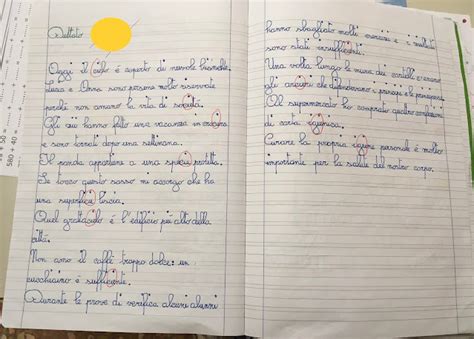 Dettato
Oggi il cielo è coperto di nuvole bianche.
Luca e Anna sono persone molto riservate
perché non amano la vita di società.
Gli zii hanno fatto una vacanza in crociera
e sono tornati dopo una settimana.
Il panda appartiene a una specie protetta.
Se tocco questo sasso mi accorgo che ha
una superficie liscia.
Quel grattacielo è l'edificio più alto della
città.
Non amo il caffè troppo dolce: un
cucchiaino è sufficiente.
Durante le prove di verifica alcuni alunni
hanno sbagliato molti esercizi e i risultati
sono stati insufficienti.
Una volta lungo le mura dei castelli c'erano
gli arcieri che difendevano i principi e le principesse.
Al supermercato ho comprato quattro confezioni
di carta igienica.
Curare la propria igiene personale è molto
importante per la salute del nostro corpo.
580 + 40 =